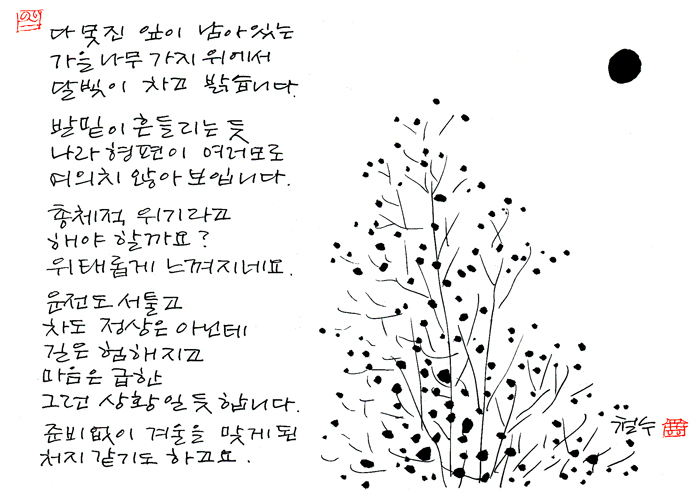 다 못진 잎이 남아있는
가을나무 가지 위에서
달빛이 차고 밝습니다.
발밑이 흔들리는 듯
나라 형편이 여러모로
여의치 않아 보입니다.
총체적 위기라고
해야 할까요?
위태롭게 느껴지네요.
운전도 서툴고
차도 정상은 아닌데
길은 험해지고
마음은 급한
그런 상황일 듯 합니다.
준비없이 겨울을 맞게 된
처지 같기도 하고요.
철수